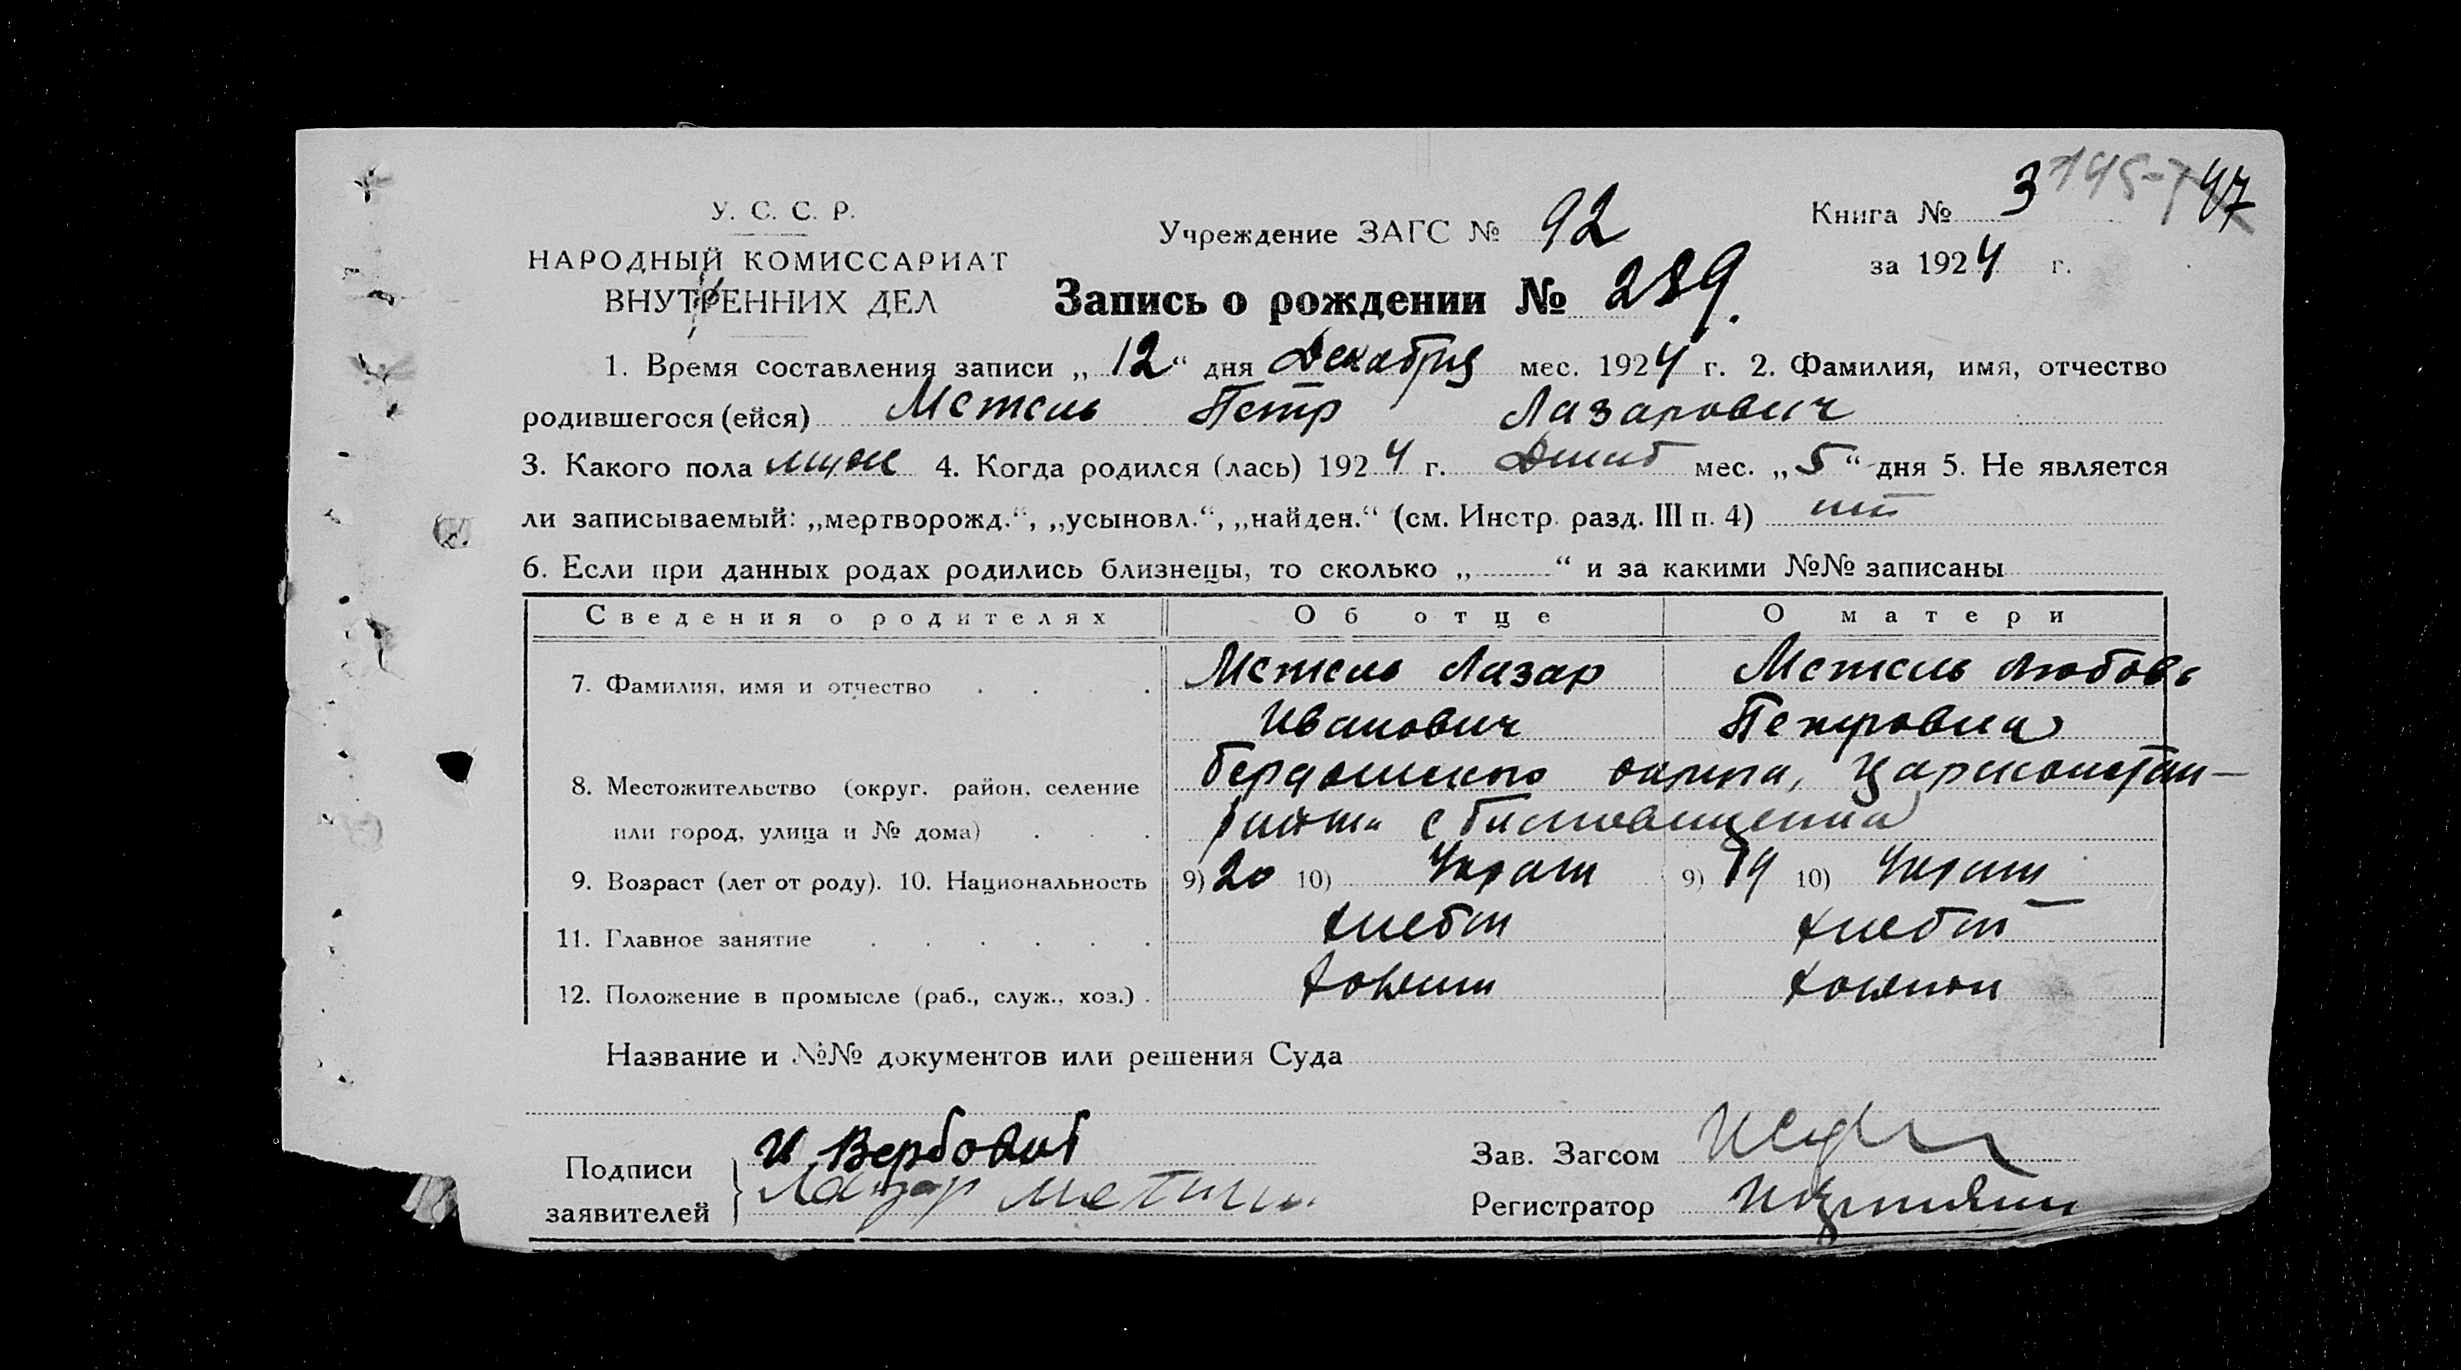 У. С. С. Р.
НАРОДНЫЙ КОМИССАРИАТ
ВНУТРЕННИХ ДЕЛ
Учреждение ЗАГС № 92
Книга № 3
47
за 1924 г.
Запись о рождении № 289.
1. Время составления записи „12“ дня Декабря мес. 1924 г. 2. Фамилия, имя, отчество
родившегося (ейся) Метель Петр Лазарович
3. Какого пола муж 4. Когда родился (лась) 1924 г. мес. „5“ дня 5. Не является
ли записываемый: „мертворожд.“, „усыновл.“, „найден.“ (см. Инстр. разд. III п. 4) нет
6. Если при данных родах родились близнецы, то сколько „ “ и за какими №№ записаны
Сведения о родителях Об отце О матери
7. Фамилия, имя и отчество Метель Лазар Метель Любовь
Иванович Петровна
8. Местожительство (округ, район, селение Бердянского округа, Царконстан-
или город, улица и № дома) района с
9. Возраст (лет от роду). 10. Национальность 9) 20 10) Украин 9) 19 10) Украин
11. Главное занятие хлебоп хлебоп
12. Положение в промысле (раб., служ., хоз.) хозяин
Название и №№ документов или решения Суда
Подписи
заявителей
И Вербовой
Лазар Метель
Зав. Загсом
Регистратор